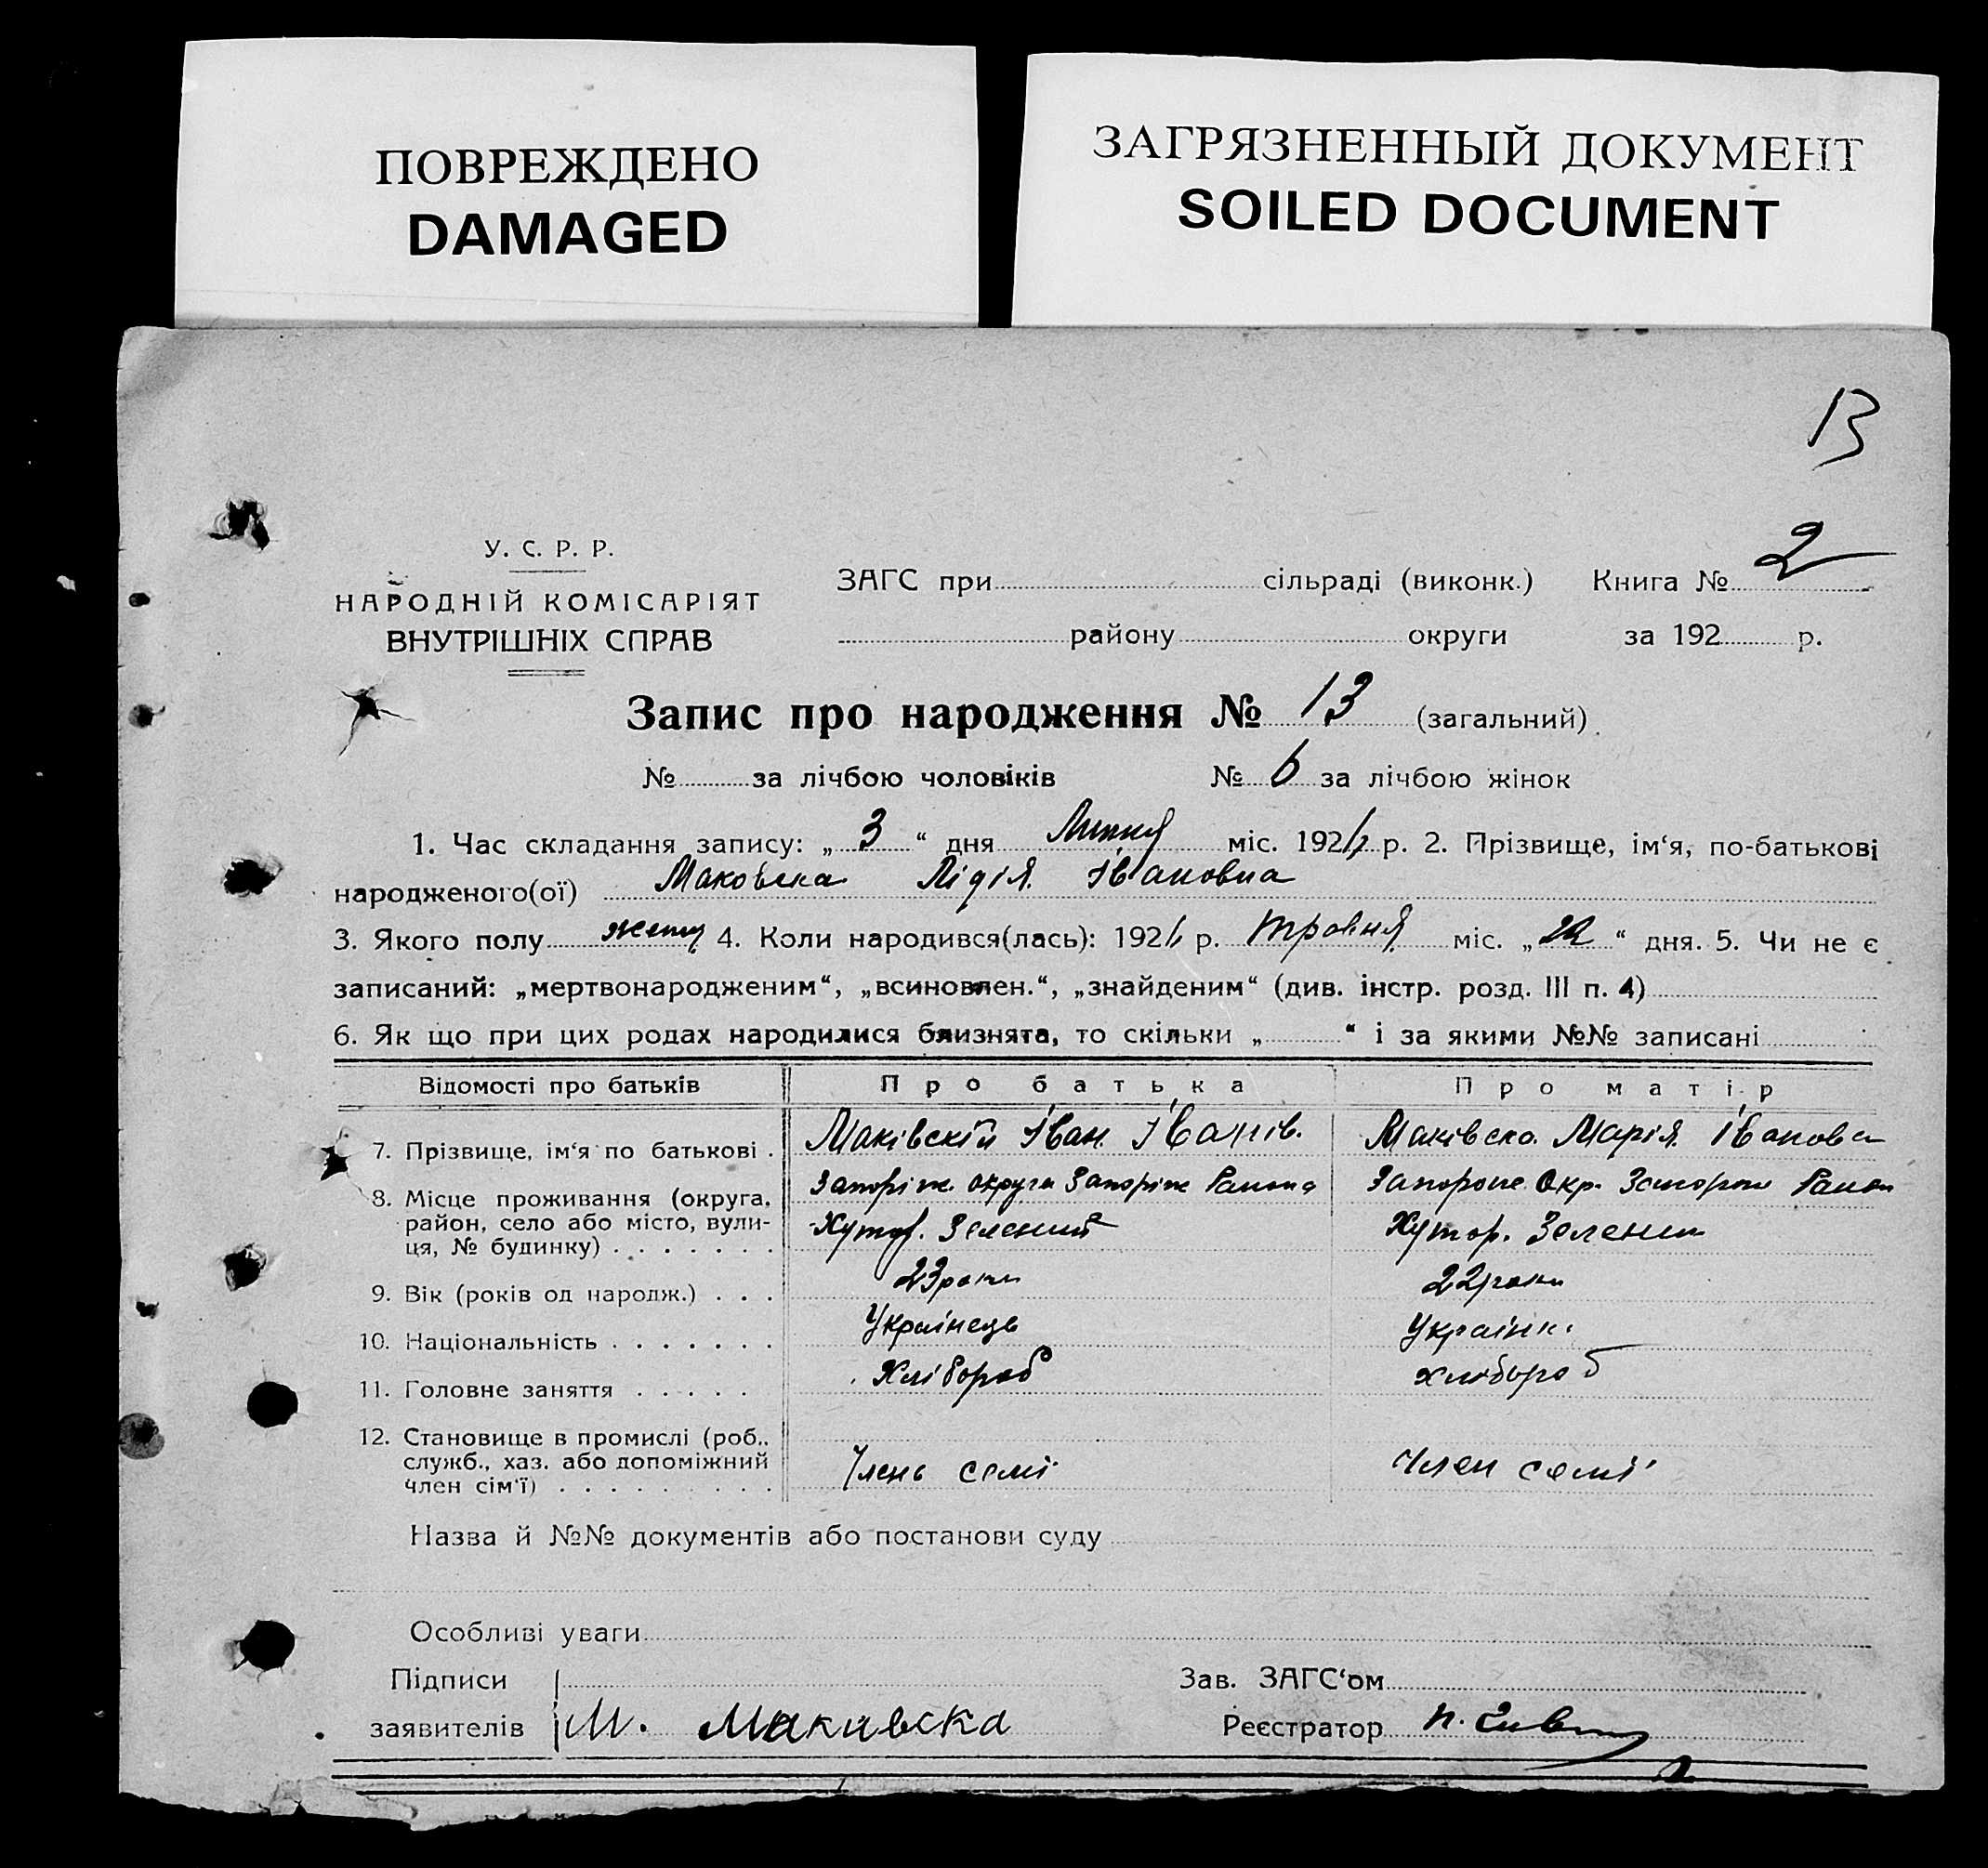 ПОВРЕЖДЕНО
DAMAGED
ЗАГРЯЗНЕННЫЙ ДОКУМЕНТ
SOILED DOCUMENT
13
У. С. Р. Р.
НАРОДНІЙ КОМІСАРІЯТ
ВНУТРІШНІХ СПРАВ
ЗАГС при сільраді (виконк.) Книга № 2
району округи за 192 р.
Запис про народження № 13 (загальний)
№ за лічбою чоловіків № 6 за лічбою жінок
1. Час складання запису: „ 3 “ дня Липня міс. 192 р. 2. Прізвище, ім‘я, по-батькові
народженого(ої) Маковска Лідія Івановна
3. Якого полу 4. Коли народився(лась): 192 р. травня міс. „ 22 “ дня. 5. Чи не є
записаний: „мертвонародженим“, „всиновлен.“, „знайденим“ (див. інстр. розд. III п. 4)
6. Як що при цих родах народилися близнята, то скільки „ “ і за якими №№ записані
Відомості про батьків Про батька Про матір
7. Прізвище, ім‘я по батькові . Маківскій Іван Іванів. Маківска Марія Іванова
8. Місце проживання (округа, Запоріж. округи Запоріж Района Запорож Окр. Запорож Район
район, село або місто, вули- Хутор. Зелений Хутор. Зелений
ця, № будинку) . . . . . . .
9. Вік (років од народж.) . . . 23 роки 22 роки
10. Національність . . . . . . . Українець Українк
11. Головне заняття . . . . . Хлібороб хлібороб
12. Становище в промислі (роб.,
служб., хаз. або допоміжний Члень семі Член семі
член сім‘ї) . . . . . . . . .
Назва й №№ документів або постанови суду
Особливі уваги
Підписи Зав. ЗАГС‘ом
заявителів М. Макивска Реєстратор